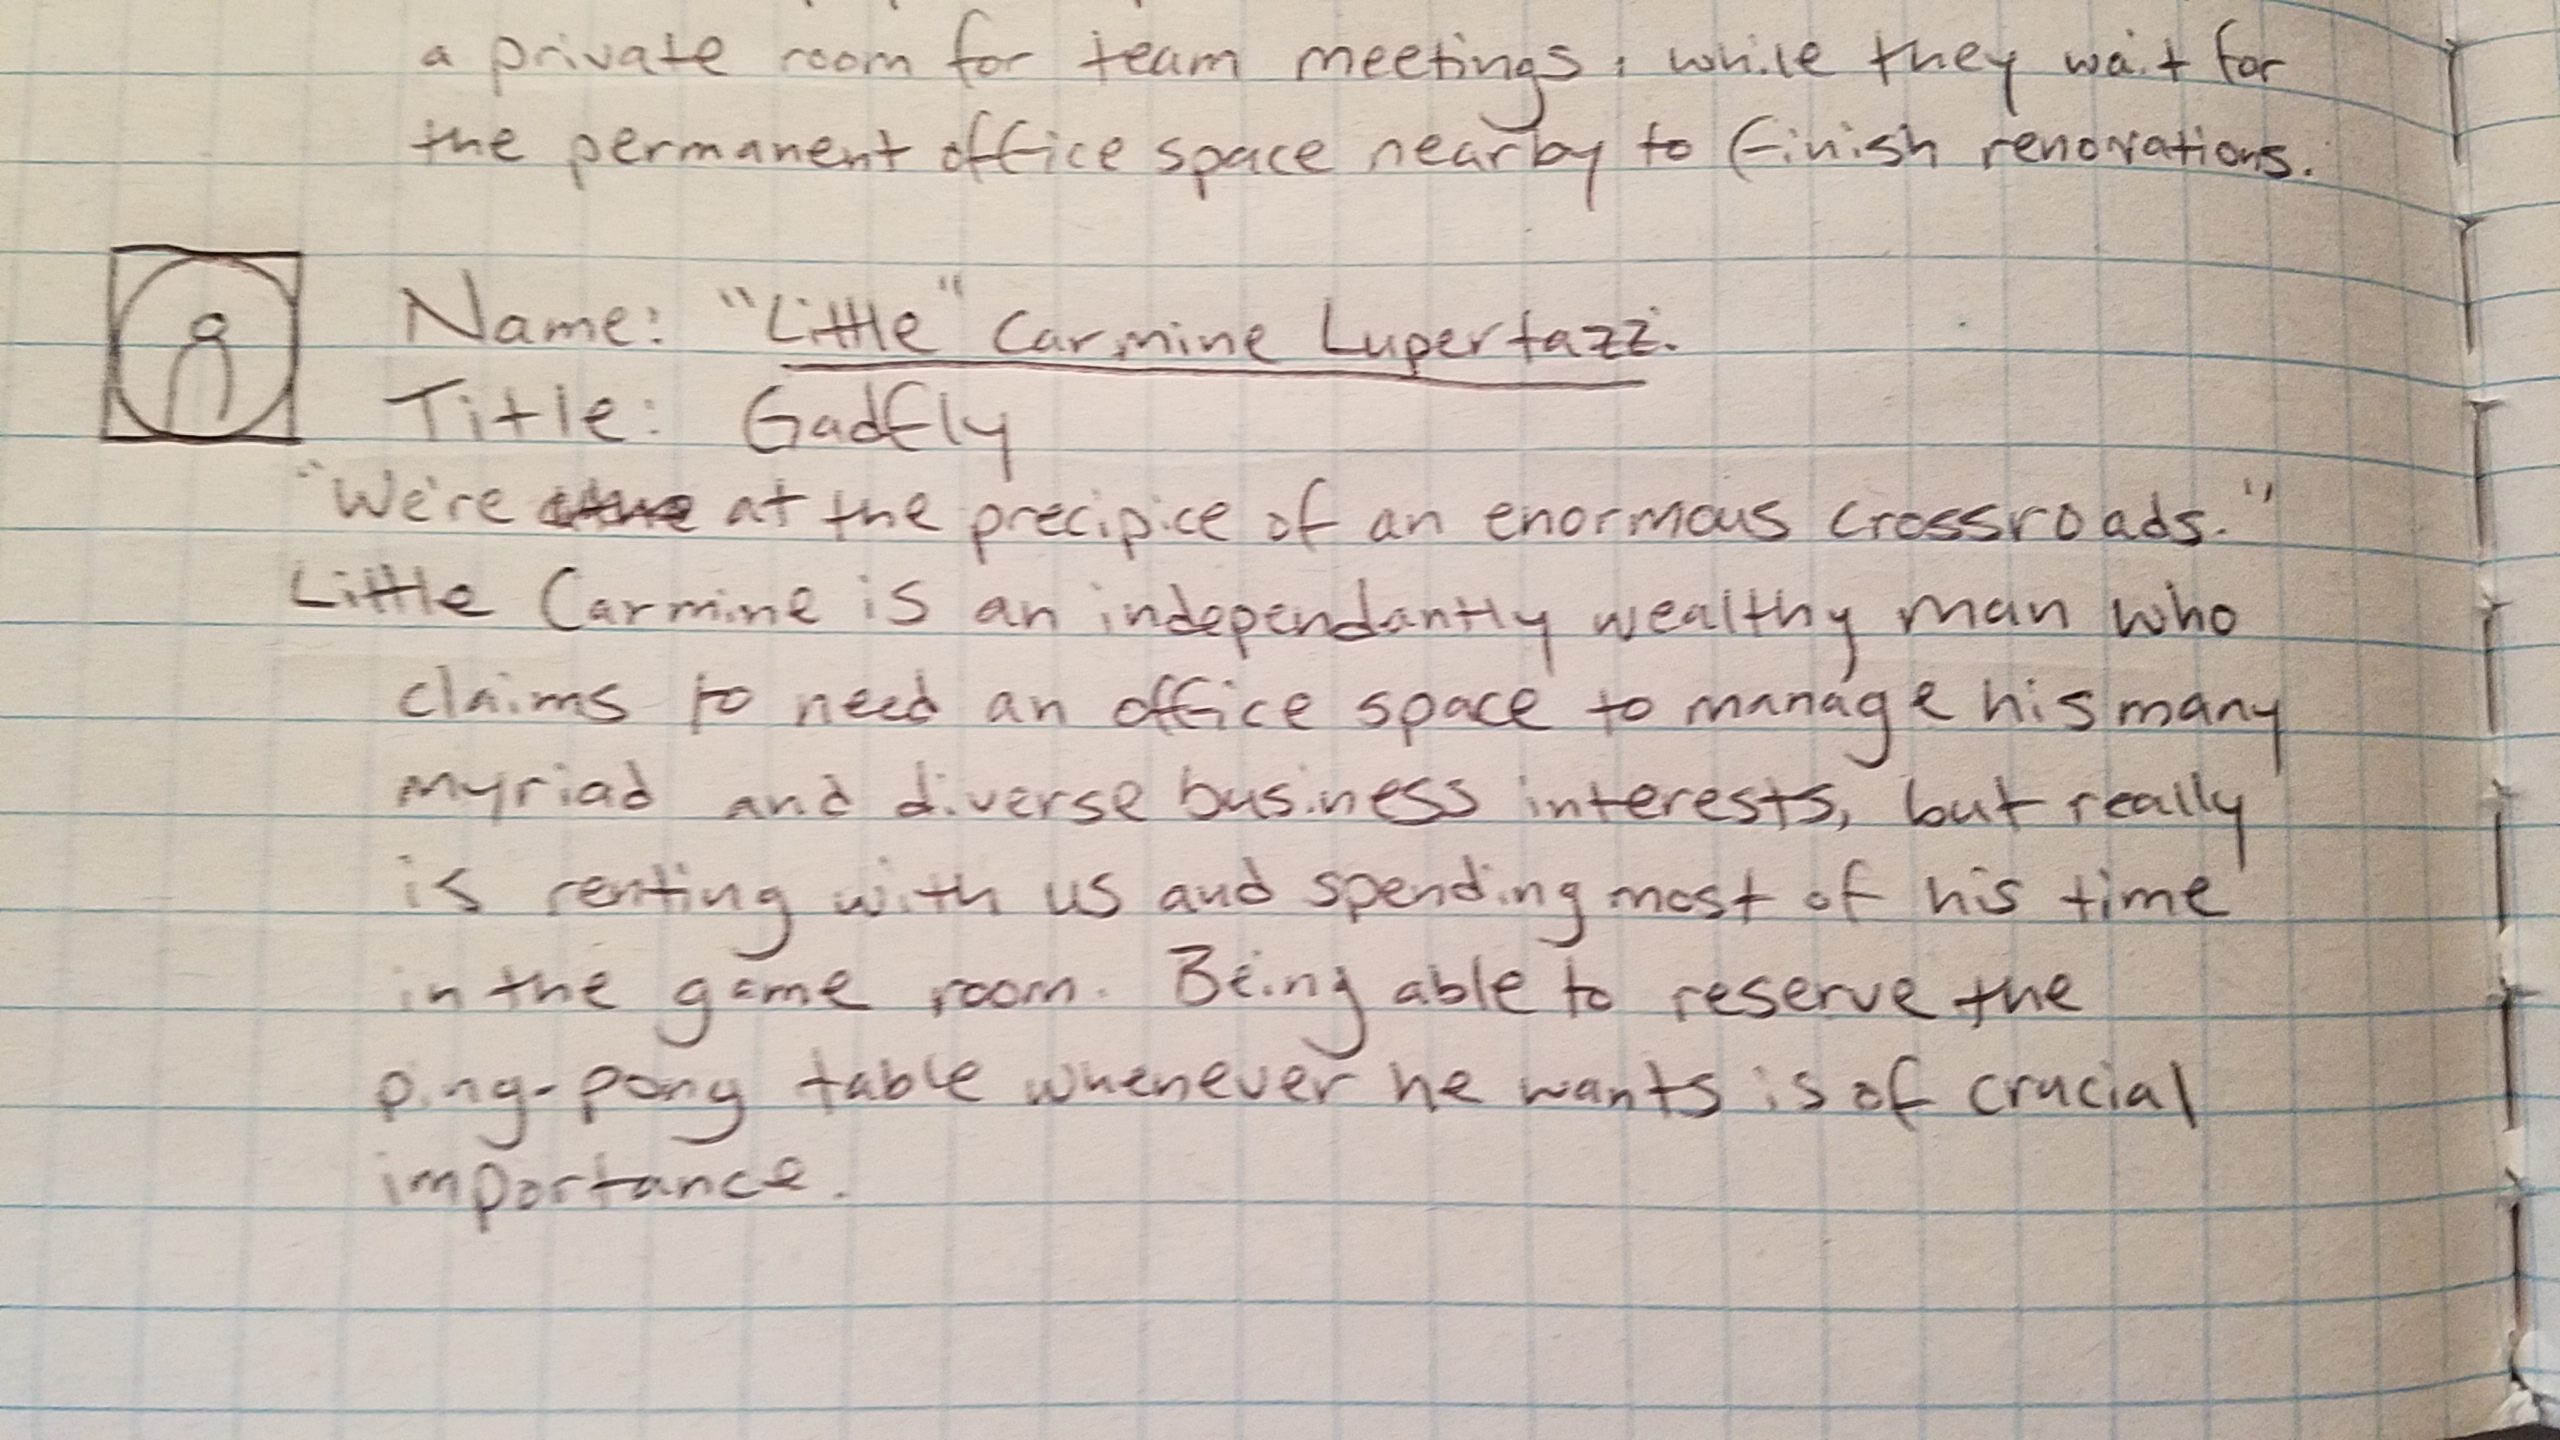 a private room for team meetings, while they wait for
the permanent office space nearby to finish renovations.
Name: "Little" Carmine Lupertazzi
Title: Gadfly
"We're at the precipice of an enormous crossroads."
Little Carmine is an independantly wealthy man who
claims to need an office space to manage his many
myriad and diverse business interests, but really
is renting with us and spending most of his time
in the game room. Being able to reserve the
ping-pong table whenever he wants is of crucial
importance.